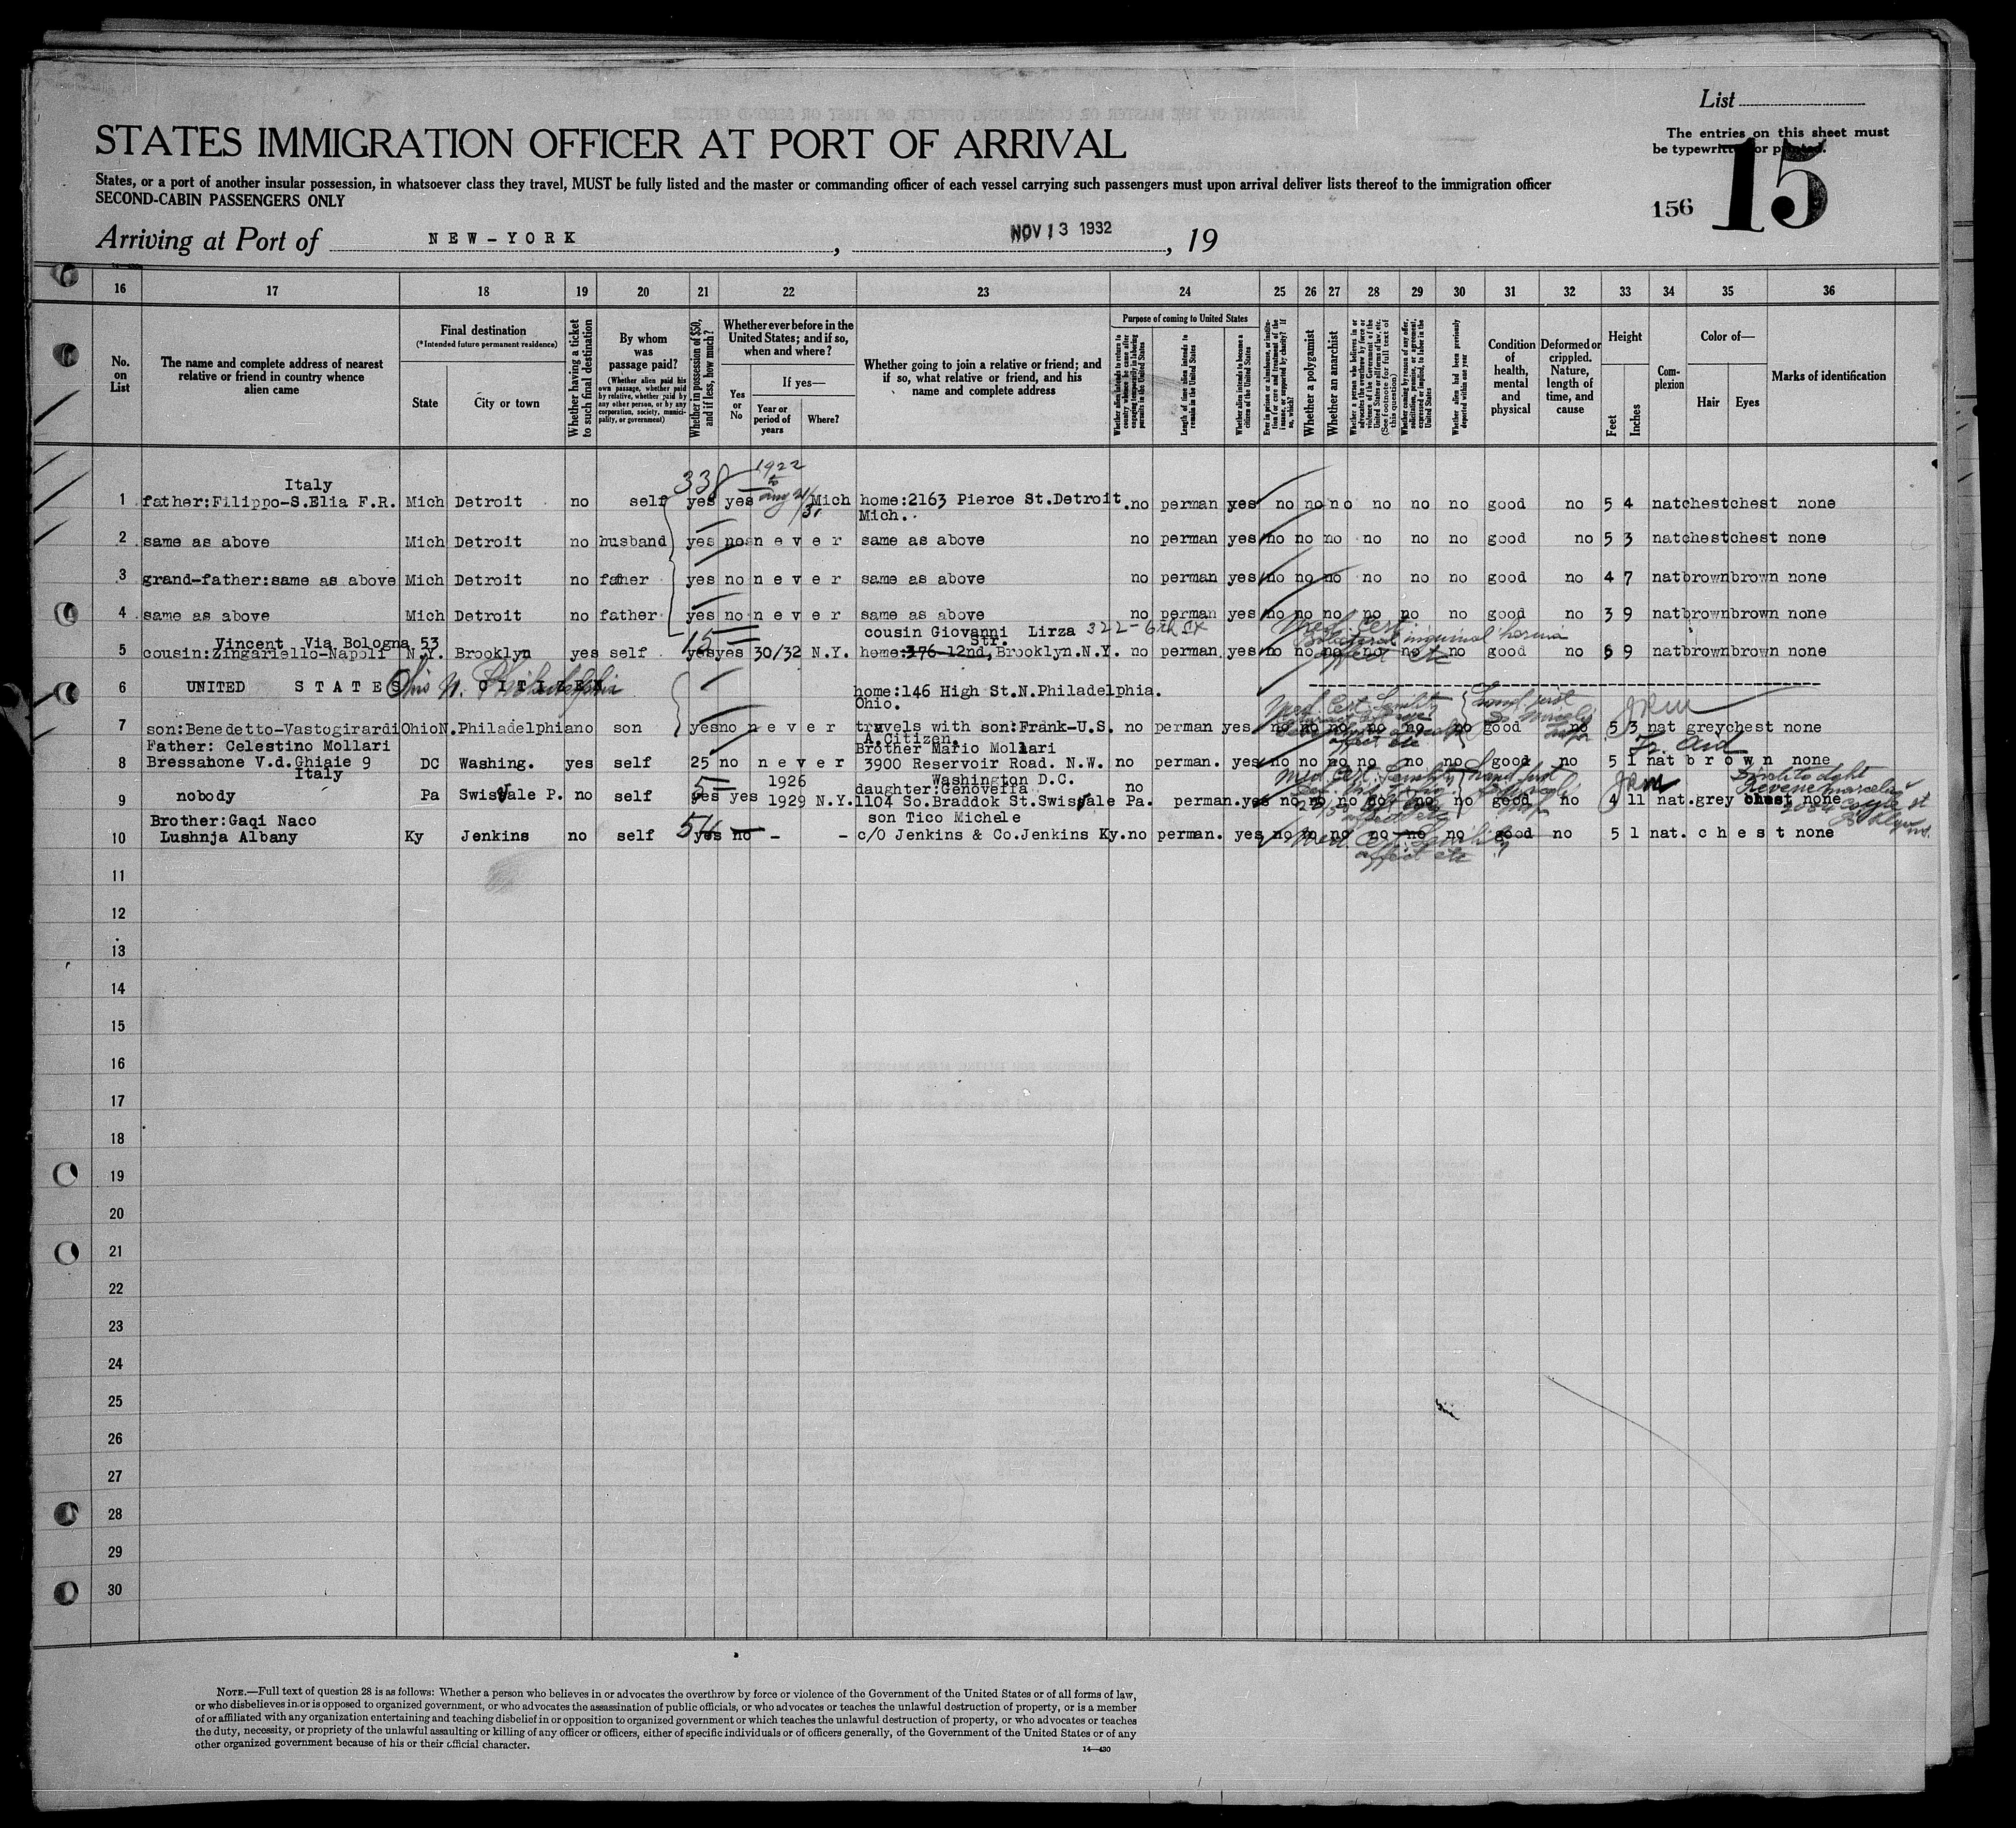 List
STATES IMMIGRATION OFFICER AT PORT OF ARRIVAL
The entries on this sheet must
be typewritten or printed.
States, or a port of another insular possession, in whatsoever class they travel, MUST be fully listed and the master or commanding officer of each vessel carrying such passengers must upon arrival deliver lists thereof to the immigration officer
SECOND-CABIN PASSENGERS ONLY
156 15
Arriving at Port of NEW-YORK , NOV 13 1932 , 19
16 17 18 19 20 21 22 23 24 25 26 27 28 29 30 31 32 33 34 35 36
No. on List
The name and complete address of nearest relative or friend in country whence alien came
Final destination
(*Intended future permanent residence)
State
City or town
Whether having a ticket to such final destination
By whom was passage paid?
(Whether alien paid his own passage, whether paid by relative, whether paid by any other person, or by any corporation, society, municipality, or government)
Whether in possession of $50, and if less, how much?
Whether ever before in the United States; and if so, when and where?
Yes or No
If yes—
Year or period of years
Where?
Whether going to join a relative or friend; and if so, what relative or friend, and his name and complete address
Purpose of coming to United States
Whether alien intends to return to country whence he came after engaging temporarily in laboring pursuits in the United States
Length of time alien intends to remain in the United States
Whether alien intends to become a citizen of the United States
Ever in prison or almshouse, or institution for care and treatment of the insane, or supported by charity? If so, which?
Whether a polygamist
Whether an anarchist
(See footnote for full text of this question)
Whether coming by reason of any offer, solicitation, promise, or agreement, expressed or implied, to labor in the United States
Whether alien had been previously deported within one year
Condition of health, mental and physical
Deformed or crippled. Nature, length of time, and cause
Height
Feet
Inches
Complexion
Color of—
Hair
Eyes
Marks of identification
Italy 338 1922 to
1 father:Filippo-S.Elia F.R. Mich Detroit no self yes yes Mich home:2163 Pierce St.Detroit no perman yes no no no no no no good no 5 4 nat chest chest none
Mich.
2 same as above Mich Detroit no husband yes no never same as above no perman yes no no no no no no good no 5 3 nat chest chest none
3 grand-father:same as above Mich Detroit no father yes no never same as above no perman yes no no no no no no good no 4 7 nat brown brown none
4 same as above Mich Detroit no father yes no never same as above no perman yes no no no no no no good no 3 9 nat brown brown none
Vincent Via Bologna 53 15 cousin Giovanni Lirza 322-6th St Med. Cert.
Str. inguinal hernia
5 cousin:Zingariello-Napoli N.Y. Brooklyn yes self yes yes 30/32 N.Y. home:376-12nd,Brooklyn.N.Y. no perman yes no no no no no no good no 5 9 nat brown brown none
affect etc
6 UNITED STATES CITIZEN Ohio N. Philadelphia home:146 High St.N.Philadelphia.
Ohio.
Med. Cert. Senility
7 son:Benedetto-Vastogirardi Ohio N.Philadelphia no son yes no never travels with son:Frank-U.S. no perman yes no no no no no no good no 5 3 nat grey chest none
A.citizen. affect etc
Father: Celestino Mollari Brother Mario Mollari
8 Bressanone V.d.Ghiaie 9 DC Washing. yes self 25 no never 3900 Reservoir Road. N.W. no perman. yes no no no no no no good no 5 1 nat brown none
Italy Washington D.C.
Med. Cert. Senility
5 1926 daughter:Genoveffa no
9 nobody Pa Swisvale P. no self yes yes 1929 N.Y. 1104 So.Braddok St.Swisvale Pa. perman. yes no no no no no no good no 4 11 nat. grey chest none
affect etc
Brother:Gaqi Naco son Tico Michele
10 Lushnja Albany Ky Jenkins no self yes no - - c/o Jenkins & Co.Jenkins Ky. no perman. yes no no no no no no good no 5 1 nat. chest none
Med. Cert. Senility
affect etc
11
12
13
14
15
16
17
18
19
20
21
22
23
24
25
26
27
28
29
30
NOTE.—Full text of question 28 is as follows: Whether a person who believes in or advocates the overthrow by force or violence of the Government of the United States or of all forms of law,
or who disbelieves in or is opposed to organized government, or who advocates the assassination of public officials, or who advocates or teaches the unlawful destruction of property, or is a member
of or affiliated with any organization entertaining and teaching disbelief in or opposition to organized government or which teaches the unlawful destruction of property, or who advocates or teaches
the duty, necessity, or propriety of the unlawful assaulting or killing of any officer or officers, either of specific individuals or of officers generally, of the Government of the United States or of any
other organized government because of his or their official character.
14—430